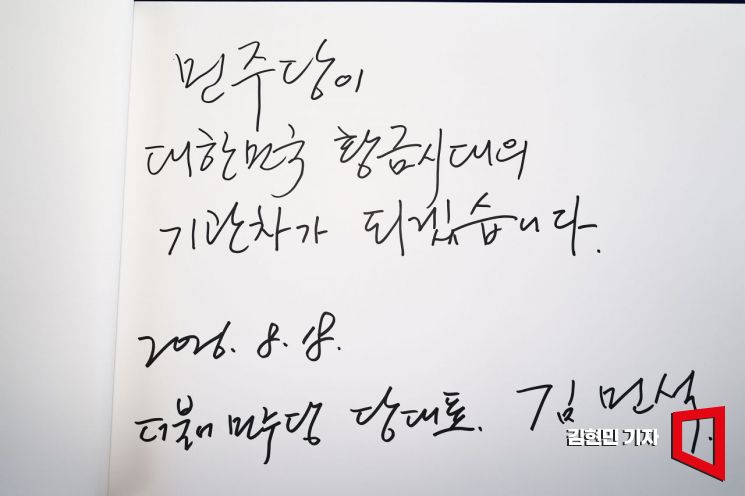 민주당이
대한민국 황금시대의
기관차가 되겠습니다.
2026. 8. 18.
더불어민주당 당대표. 김민석.
김현민 기자